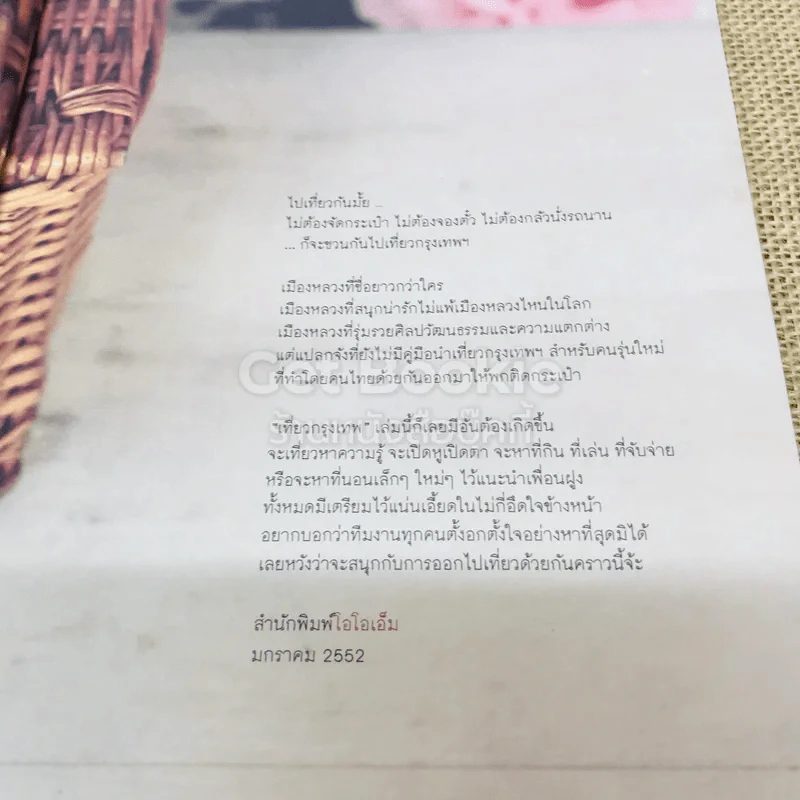 ไปเที่ยวกันมั้ย ...
ไม่ต้องจัดกระเป๋า ไม่ต้องจองตั๋ว ไม่ต้องกลัวนั่งรถนาน
... ก็จะชวนกันไปเที่ยวกรุงเทพฯ
เมืองหลวงที่ชื่อยาวกว่าใคร
เมืองหลวงที่สนุกน่ารักไม่แพ้เมืองหลวงไหนในโลก
เมืองหลวงที่รุ่มรวยศิลปวัฒนธรรมและความแตกต่าง
แต่แปลกจังที่ยังไม่มีคู่มือนำเที่ยวกรุงเทพฯ สำหรับคนรุ่นใหม่
ที่ทำโดยคนไทยด้วยกันออกมาให้พกติดกระเป๋า
Get Bookie
"เที่ยวกรุงเทพ" เล่มนี้ก็เลยมีอันต้องเกิดขึ้น
ร้านหนังสือบุ๊คกี้
จะเที่ยวหาความรู้ จะเปิดหูเปิดตา จะหาที่กิน ที่เล่น ที่จับจ่าย
หรือจะหาที่นอนเล็กๆ ใหม่ๆ ไว้แนะนำเพื่อนฝูง
ทั้งหมดมีเตรียมไว้แน่นเอี้ยดในไม่กี่อึดใจข้างหน้า
อยากบอกว่าทีมงานทุกคนตั้งอกตั้งใจอย่างหาที่สุดมิได้
เลยหวังว่าจะสนุกกับการออกไปเที่ยวด้วยกันคราวนี้จ้ะ
สำนักพิมพ์โอโอเอ็ม
มกราคม 2552